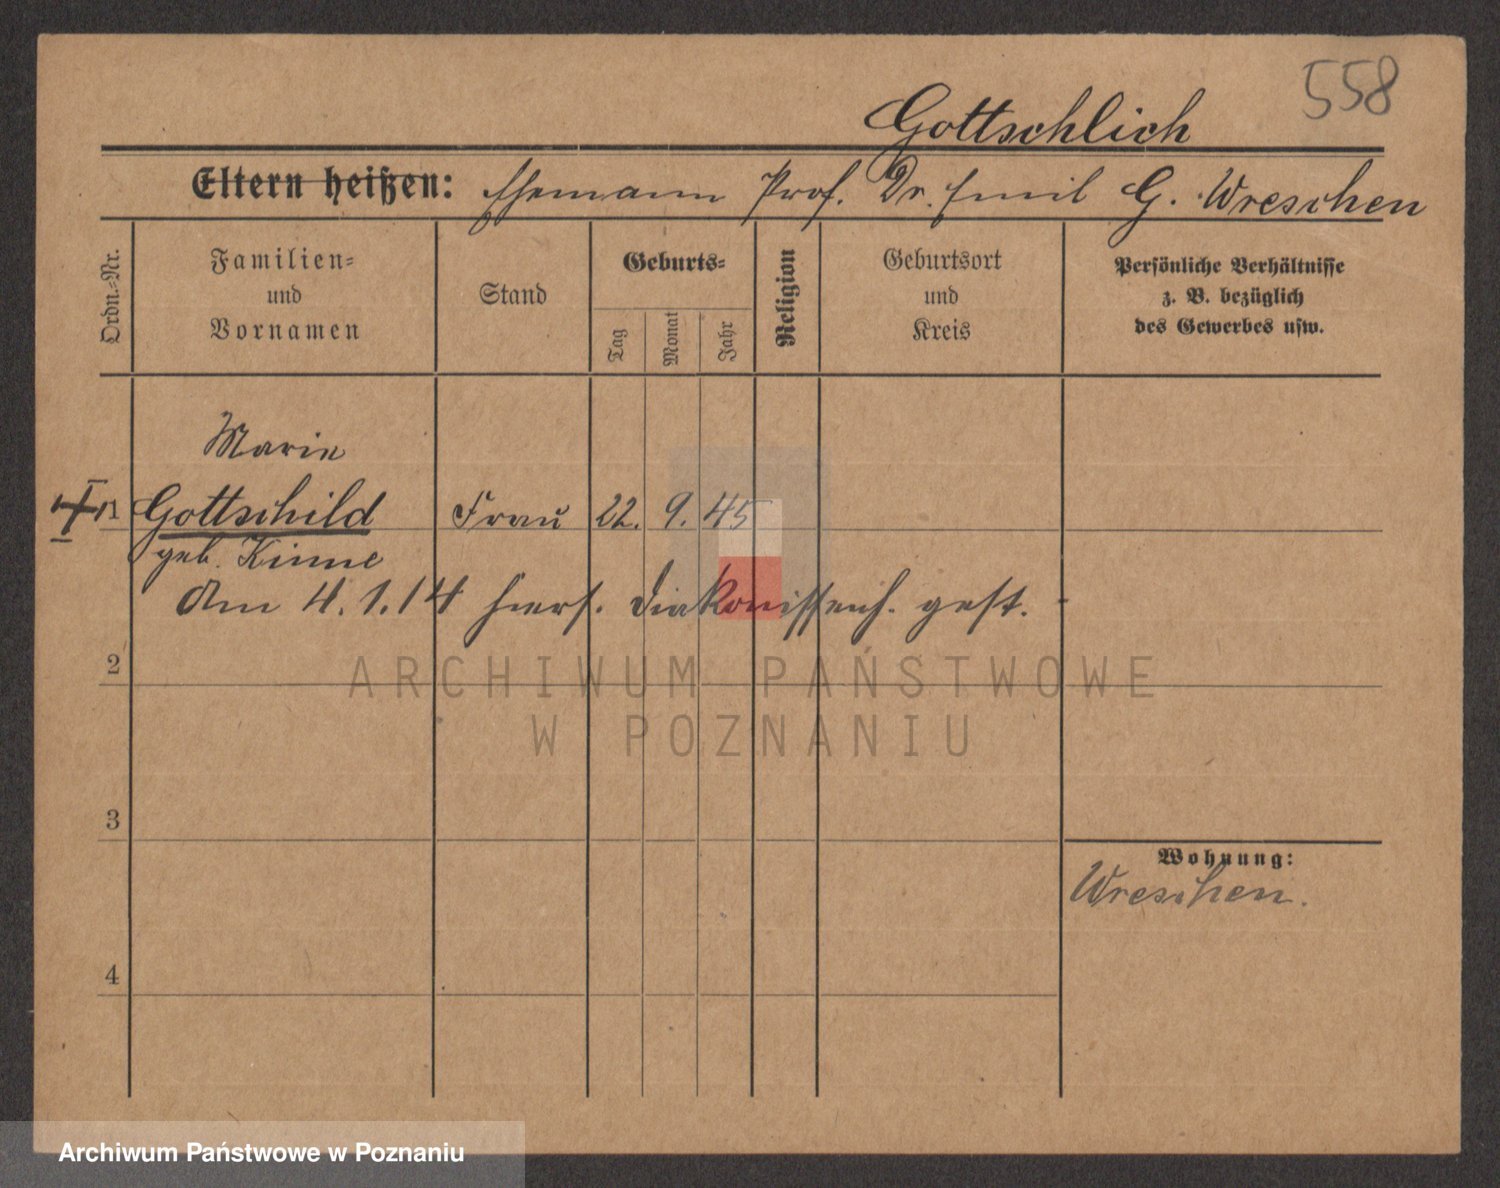 558
Gottschlich
Eltern heißen: Ehemann Prof. Dr. Emil G. Wreschen
Ordn.-Nr.
Familien-
und
Vornamen
Stand
Geburts-
Tag
Monat
Jahr
Religion
Geburtsort
und
Kreis
Persönliche Verhältnisse
z. B. bezüglich
des Gewerbes usw.
Marie
1 Gottschild Frau 22. 9. 45
geb. Kinne
Am 4.1.14 hiers. Diakonissenh. gest.
2
ARCHIWUM PAŃSTWOWE
W POZNANIU
3
Wohnung:
Wreschen.
4
Archiwum Państwowe w Poznaniu